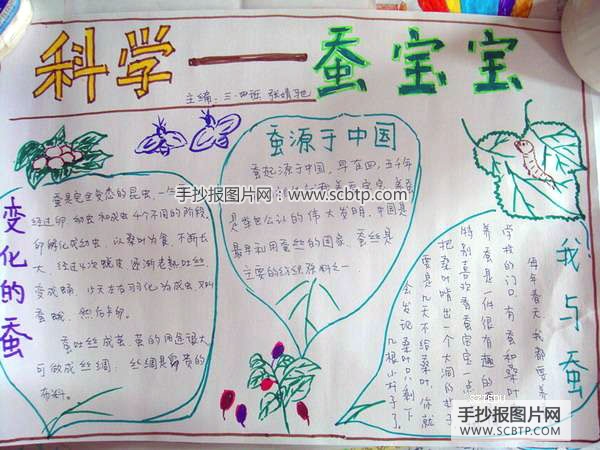 科学——蚕宝宝
主编：三.四班 张婧驰
变化的蚕
蚕是完全变态的昆虫，一生
经过卵 幼虫和成虫4个不同的阶段，
卵孵化成幼虫，以桑叶为食，不断长
大，经过4次蜕皮 逐渐老熟吐丝，
变成蛹，15天左右羽化为成虫 又叫
蚕蛾，然后产卵。
蚕吐丝成茧，茧的用途很大
可做成丝绸，丝绸是 贵的
布料。
蚕源于中国
蚕起源于中国，早在四、五千年
是举世公认的伟大发明，中国是
最早利用蚕丝的国家，蚕丝是
主要的纺织原料之一
我与蚕
每年春天，我都要养
学校的门口，有蚕和桑叶
养蚕是一件很有趣的
特别喜欢看蚕宝宝一点
把桑叶啃出一个大洞的样子
要是几天不给桑叶，你就
会发记桑叶只剩下
几根小杆子了。
手抄报图片网
www.scbtp.com
手抄报图片网
WWW.SCBTP.COM